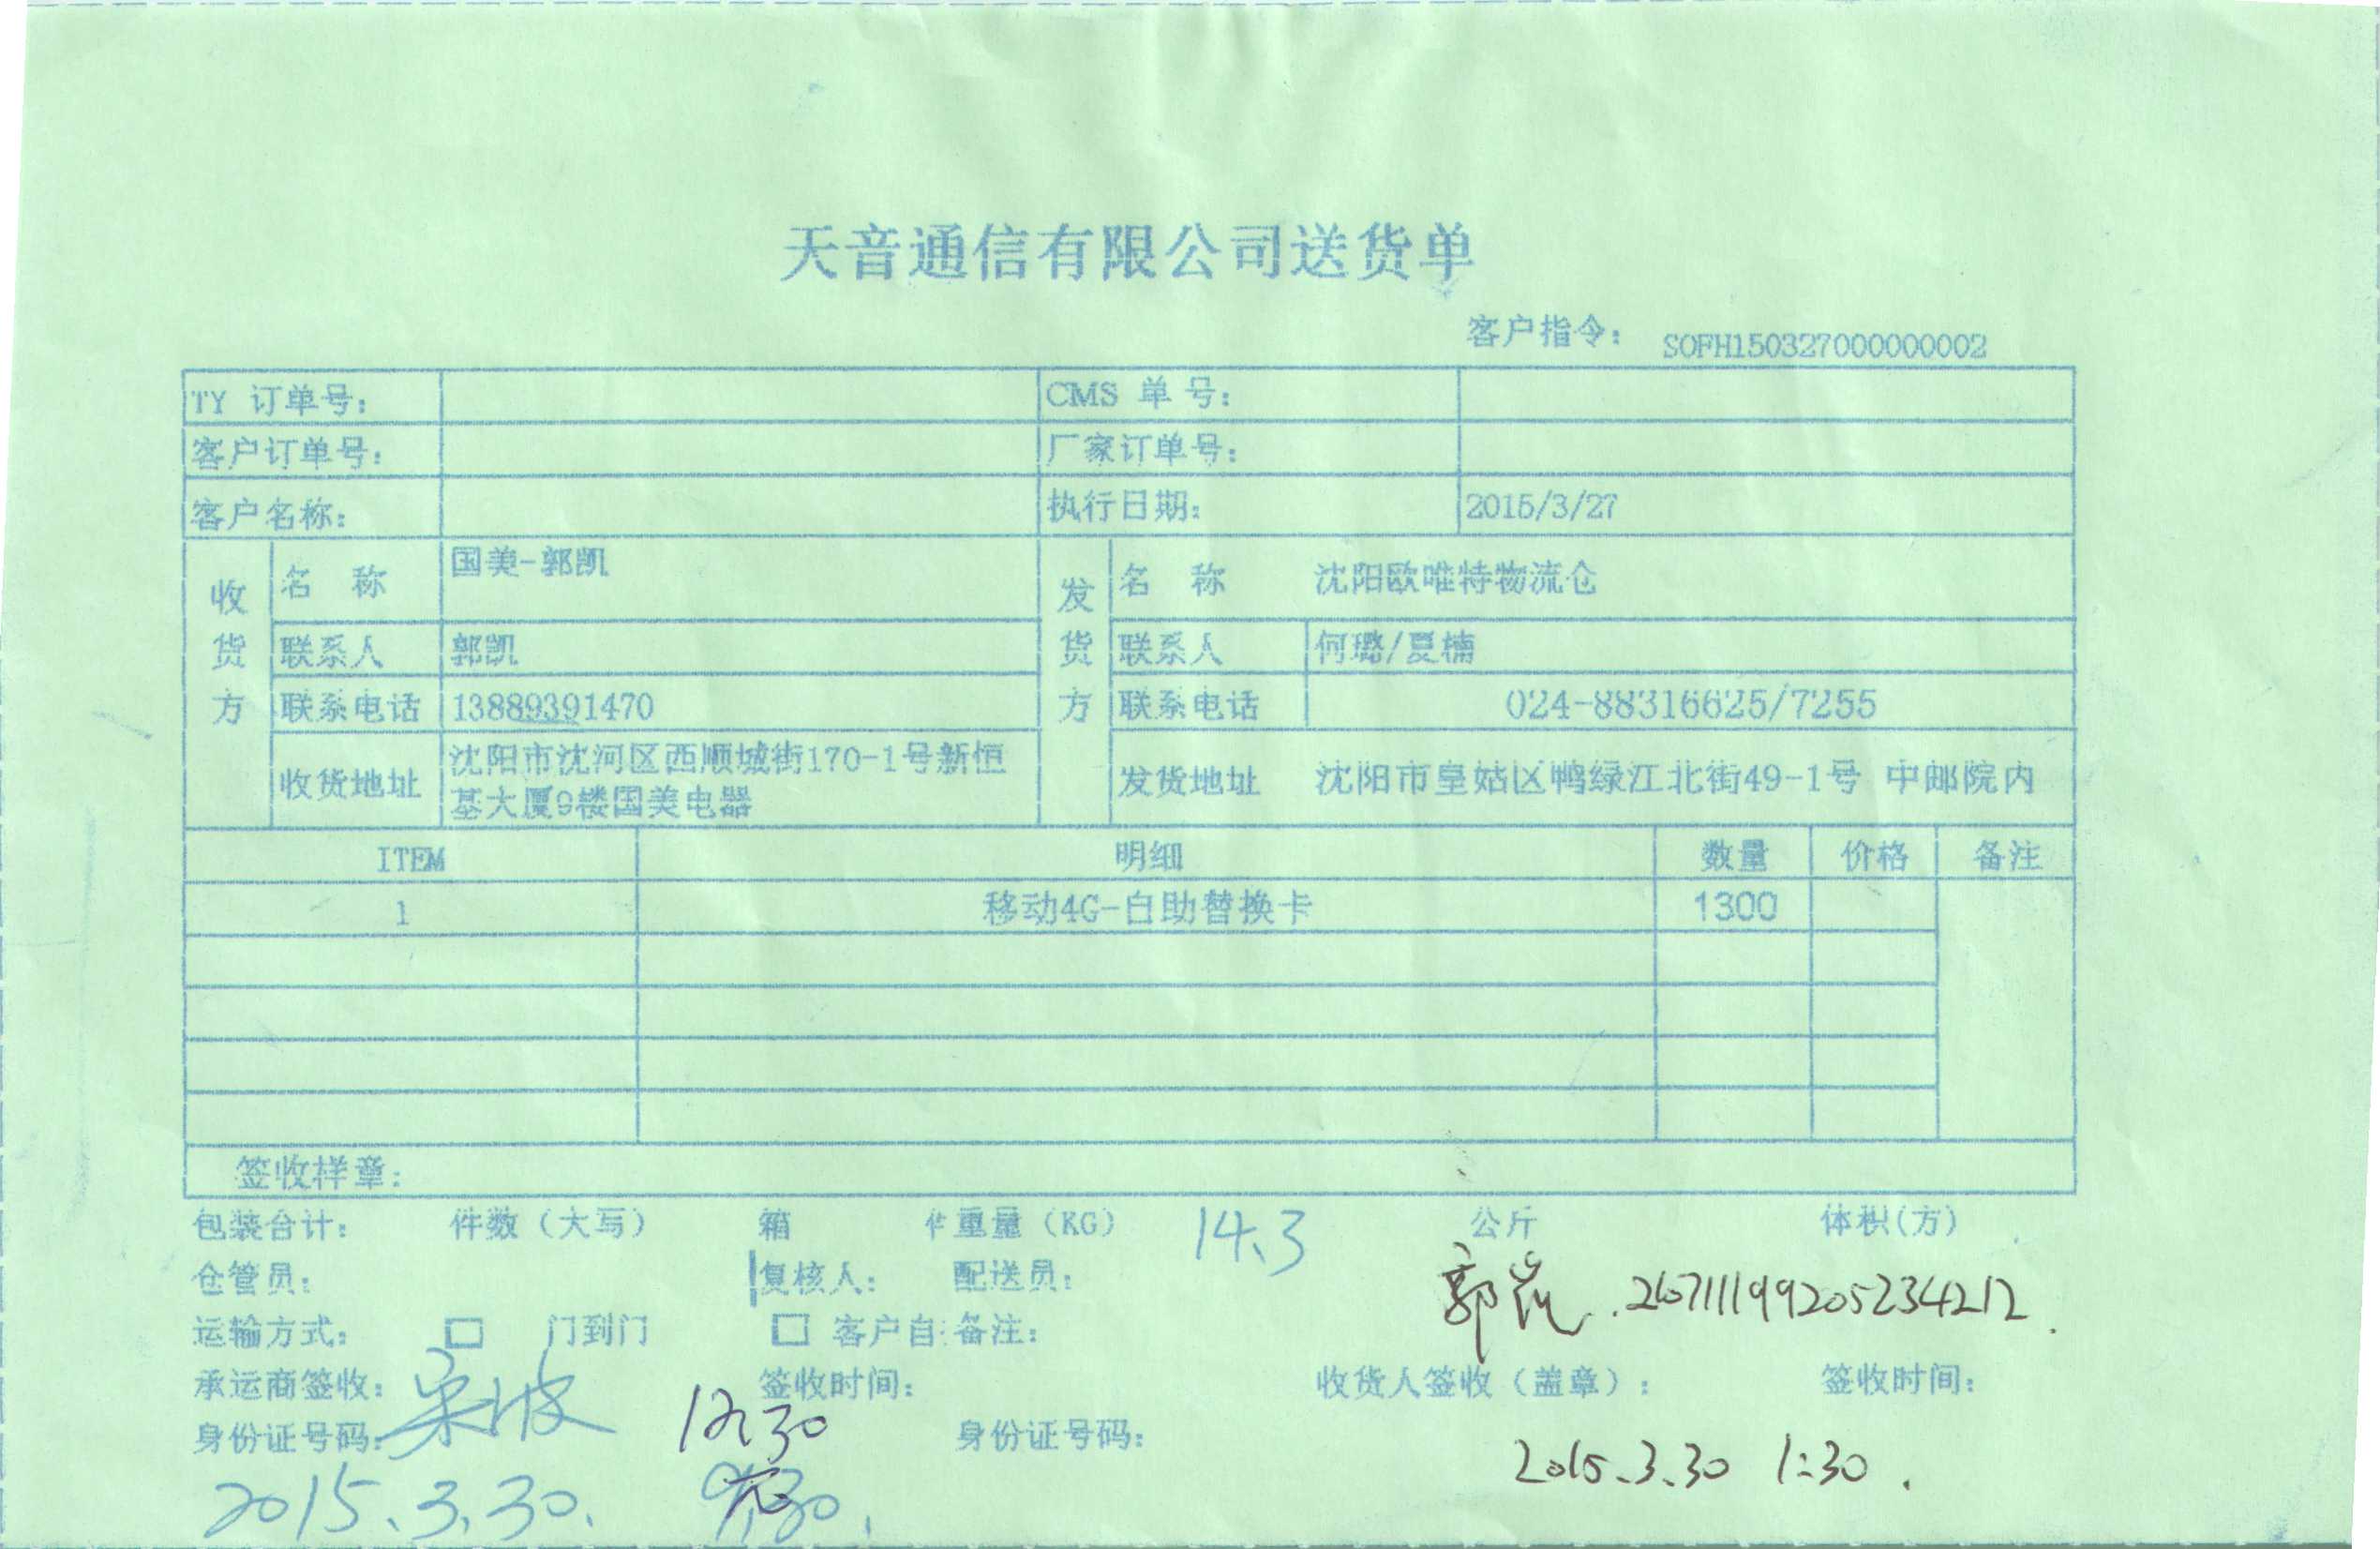 天音通信有限公司送货单
客户指令: SOFH150327000000002
TY 订单号: CMS 单 号:
客户订单号: 厂家订单号:
客户名称: 执行日期: 2015/3/27
收货方 名 称 国美-郭凯 发货方 名 称 沈阳欧唯特物流仓
联系人 郭凯 联系人 何璐/夏楠
联系电话 13889391470 联系电话 024-88316625/7255
收货地址 沈阳市沈河区西顺城街170-1号新恒 发货地址 沈阳市皇姑区鸭绿江北街49-1号 中邮院内
基大厦9楼国美电器
ITEM 明细 数量 价格 备注
1 移动4G-自助替换卡 1300
签收样章:
包装合计: 件数（大写） 箱 重量（KG） 14.3 公斤 体积(方)
仓管员: 复核人: 配送员:
郭凯. 267111199205234212.
运输方式: □ 门到门 □ 客户自 备注:
承运商签收: 签收时间: 收货人签收（盖章）: 签收时间:
12:30
身份证号码: 身份证号码:
2015.3.30 1:30.
2015.3.30. 9:30.